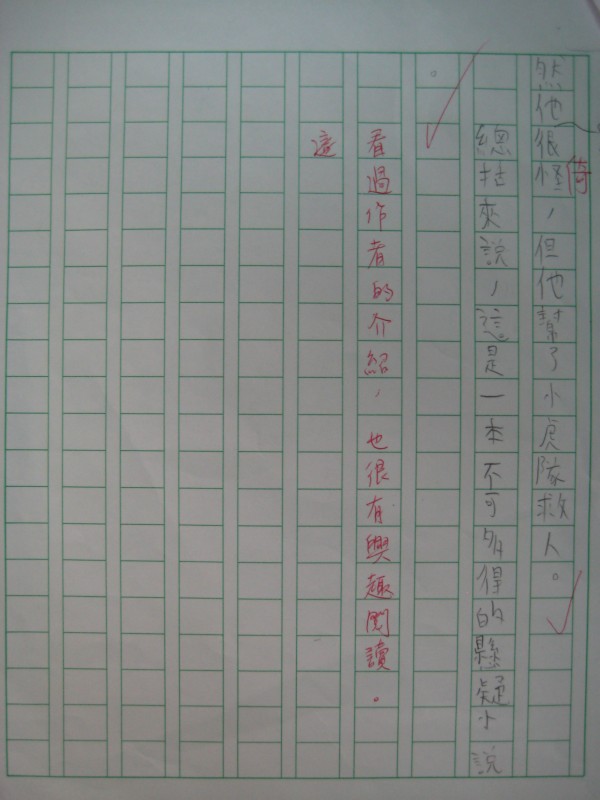 然他很怪，但他幫了小虎隊救人。
倚
總括來說，這是一本不可多得的懸疑小說
。
看過作者的介紹，也很有興趣閱讀。
這